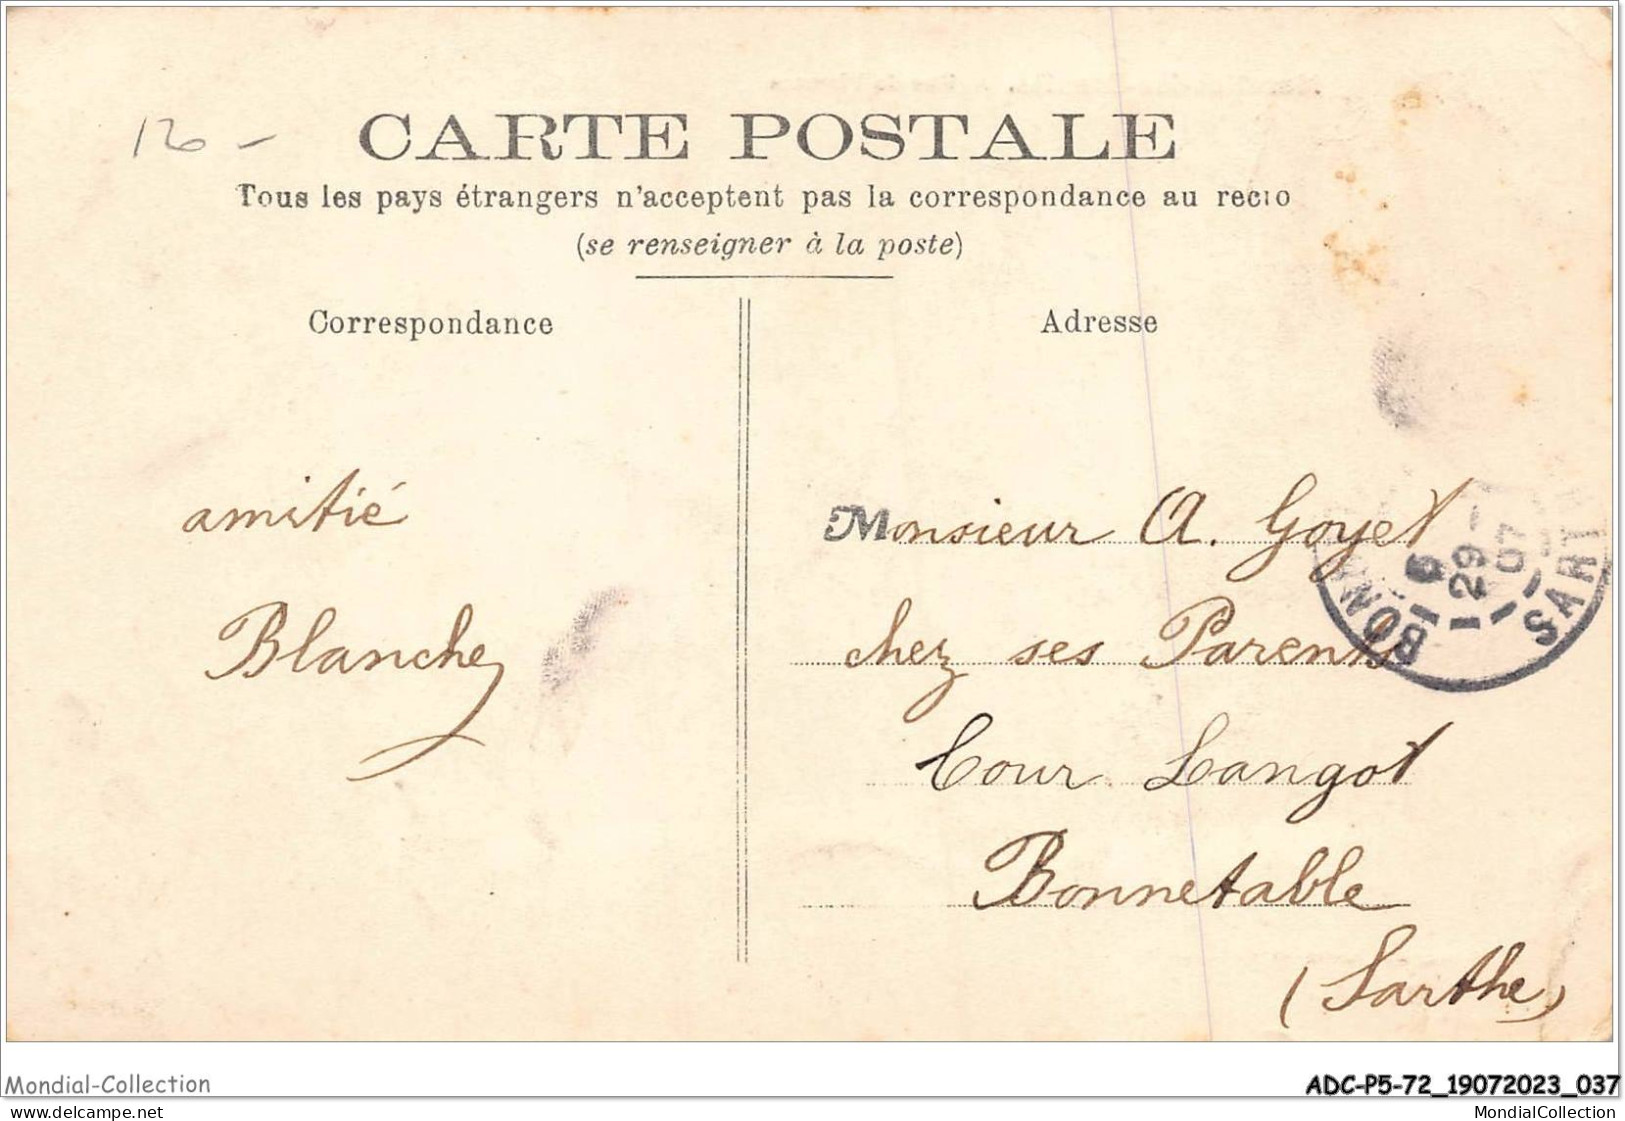 12 -
CARTE POSTALE
Tous les pays étrangers n'acceptent pas la correspondance au recto
(se renseigner à la poste)
Correspondance
Adresse
amitié
Blanche
Monsieur A. Goyet
chez ses Parents
Cour Langot
Bonnetable
(Sarthe)
6
29 -
07
SART
Mondial-Collection
ADC-P5-72_19072023_037
www.delcampe.net
MondialCollection